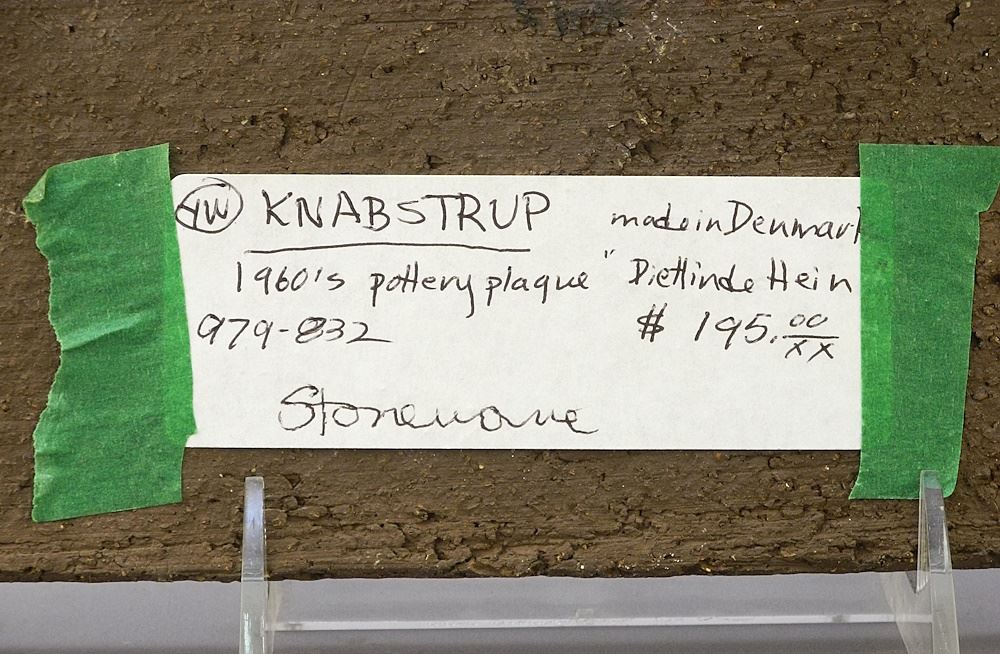 YW KNABSTRUP made in Denmark
1960's pottery plaque " Dietlinde Hein
979-832 $ 195.00/xx
Stoneware